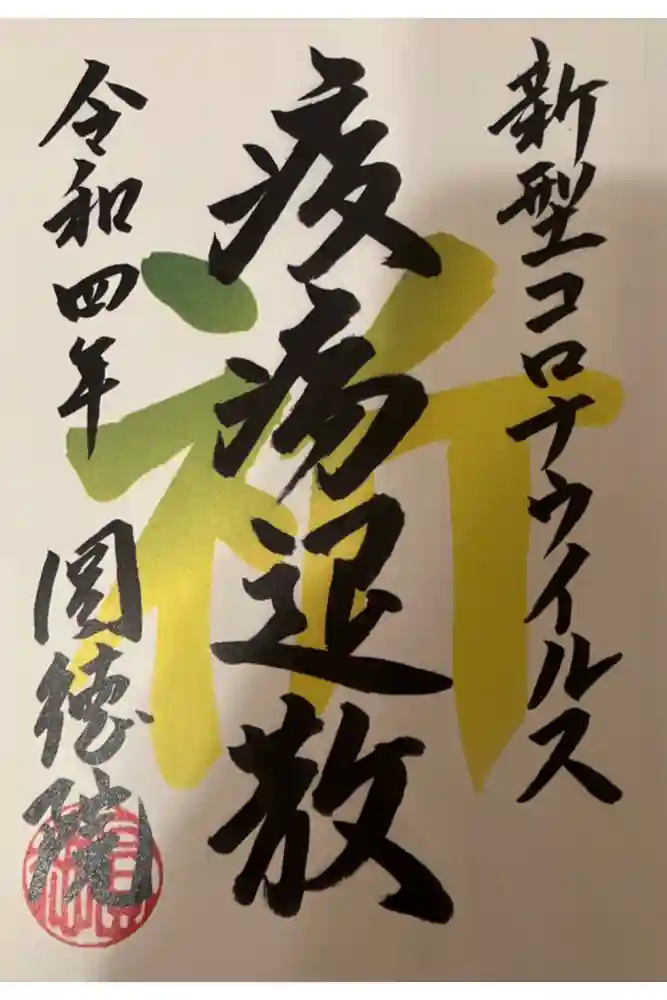 新型コロナウイルス
疫病退散
祈
令和四年
圓徳院